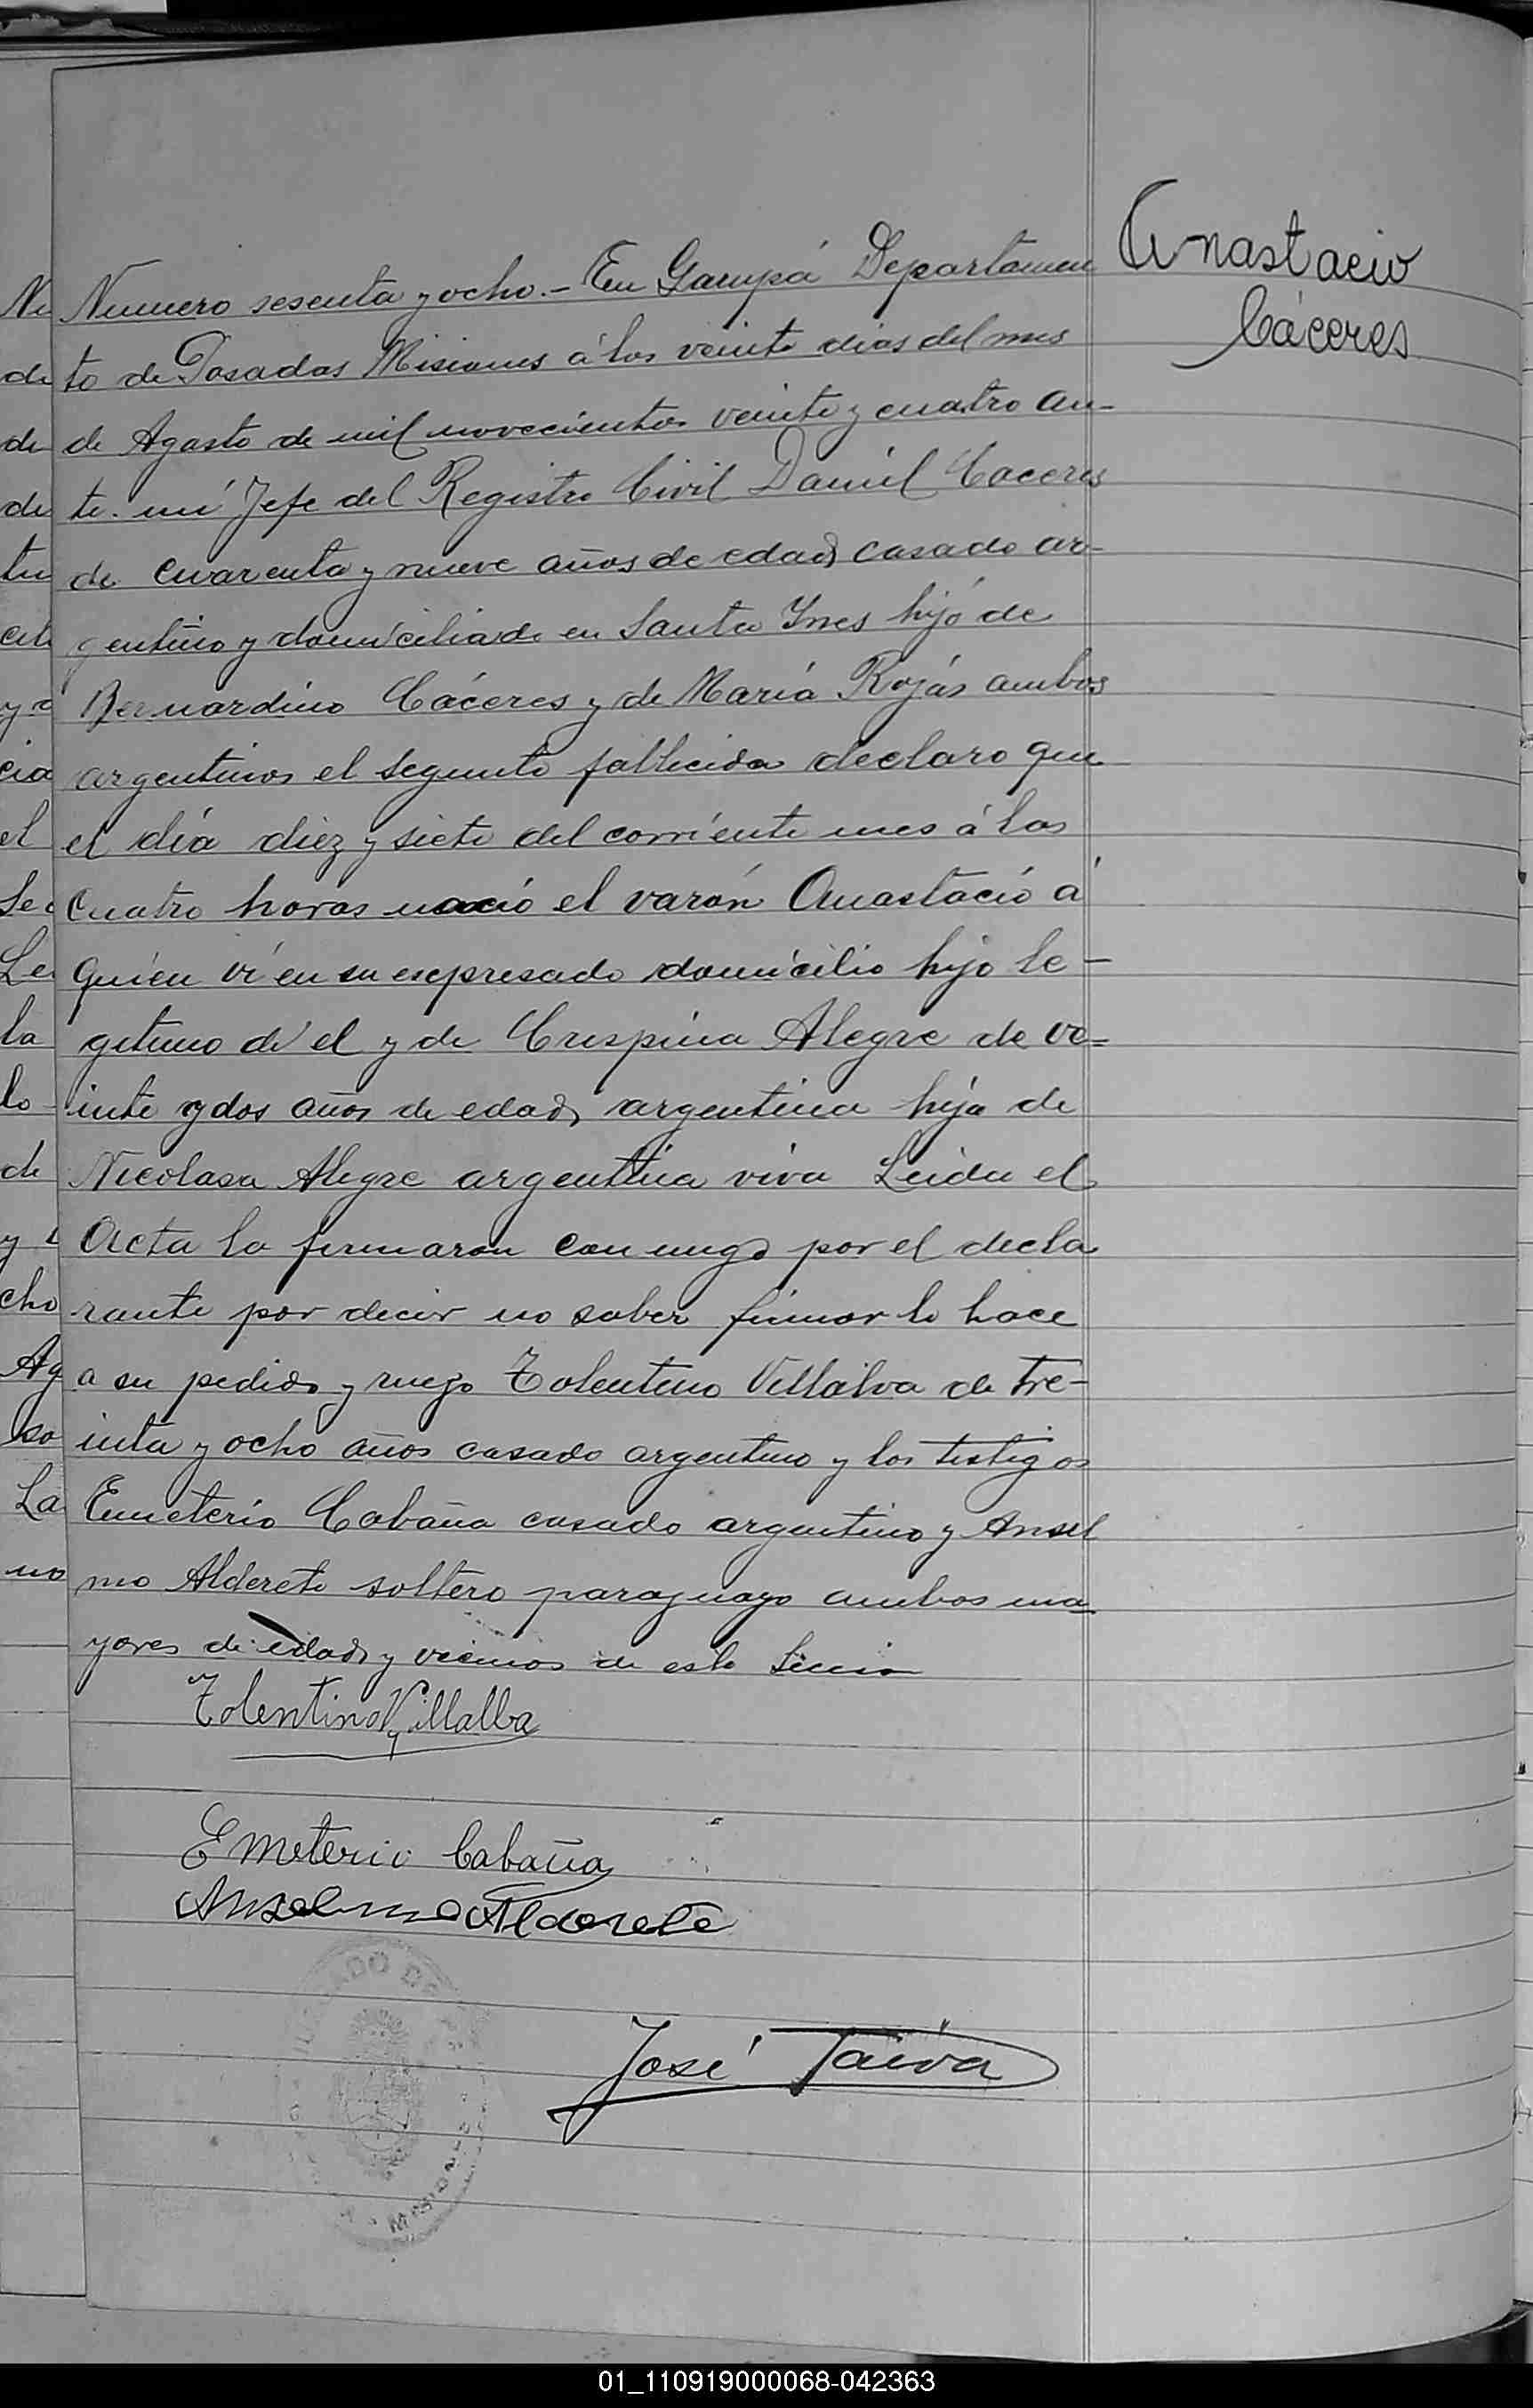 Anastacio
Cáceres
Numero sesenta y ocho.- En Garupá Departamen
to de Posadas Misiones á los veinte dias del mes
de Agosto de mil novecientos veinte y cuatro an-
te. mí Jefe del Registro Civil Daniel Caceres
de cuarenta y nueve años de edad casado ar-
gentino y domiciliado en Santa Ynes hijo de
Bernardino Cáceres y de María Rojás ambos
argentinos el segunto fallecida declaro que
el día diez y siete del corriente mes á las
cuatro horas nació el varón Anastacio á
quien ví en su expresado domicilio hijo le-
getimo de el y de Crespina Alegre de ve=
inte y dos años de edad argentina hija de
Nicolasa Alegre argentina viva Leida el
Acta la firmaron con migo por el decla
rante por decir no saber firmar lo hace
a su pedido y ruego Tolentino Villalva de tre-
inta y ocho años casado argentino y los testigos
Emeterio Cabaña casado argentino y Ansel
mo Alderete soltero paraguayo ambos ma
yores de edad y vecinos de esta
Tolentino Villalba
Emeterio Cabaña
Anselmo Alderete
José Paiva
MISIONES
01_110919000068-042363
Nu
de
de
de
tu
y
cia
el
Se
Le
la
lo
de
y
cho
Ag
so
La
no